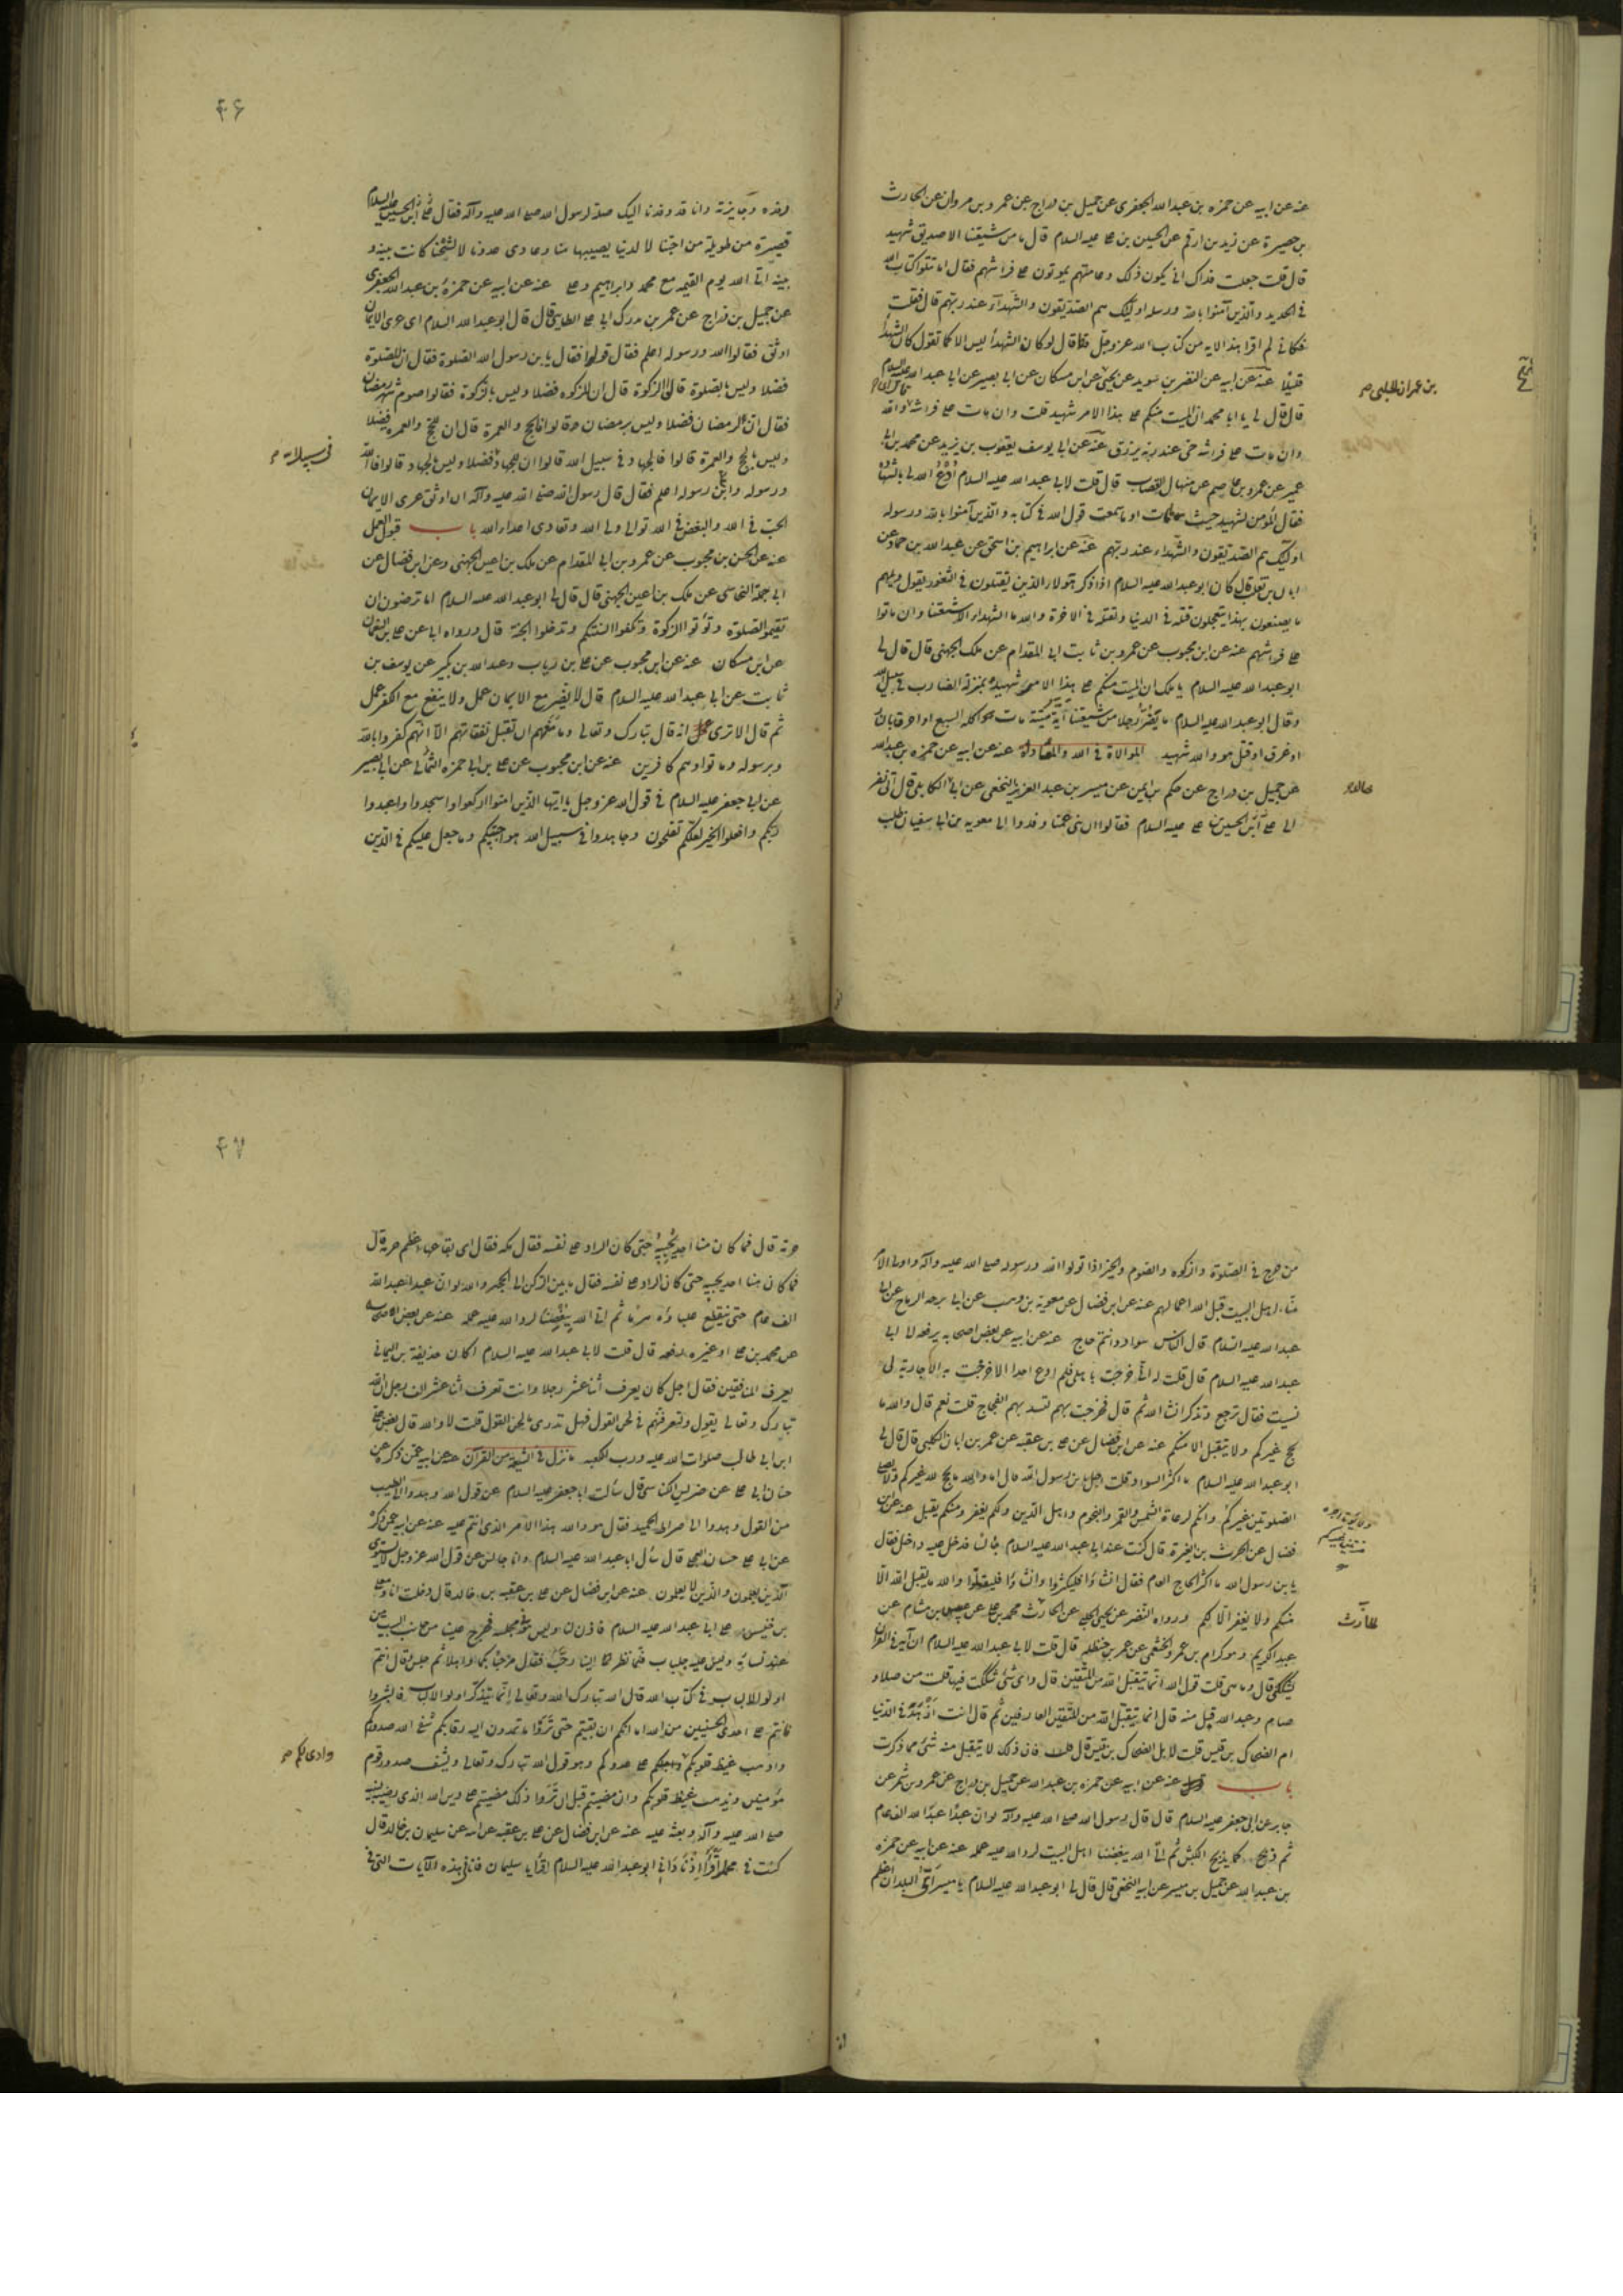 عنه عن ابيه عن حمزه بن عبد الله الجعفرى عن جميل بن دراج عن عمرو بن مروان عن الحارث
بن حصيرة عن زيد بن ارقم عن الحسين بن على عليه السلام قال ما من شيعتنا الا صديق شهيد
قال قلت جعلت فداك انى يكون ذلك وعامتهم يموتون على فراشهم فقال اما تتلو كتاب الله
فى الحديد والذين آمنوا بالله ورسله اولئك هم الصديقون والشهدآء عند ربهم قال فقلت
فكانى لم اقرا هذه الايه من كتاب الله عز وجل قط قال لو كان الشهدأ ليس الا كما تقول كان الشهدأ
قليلا عنه عن ابيه عن النضر بن سويد عن يحيى عن ابن مسكان عن ابى بصير عن ابى عبد الله عليه السلام
بن عمران الحلبى صح
قال قال لى يا ابا محمد ان الميت منكم على هذا الامر شهيد قلت وان مات على فراشه قال اى والله
وان مات على فراشه حى عند ربه يرزق عنه عن ابى يوسف يعقوب بن يزيد عن محمد بن ابى
عمير عن عمرو بن عاصم عن منهال القصاب قال قلت لابى عبد الله عليه السلام ادع الله لى بالشهادة
فقال المؤمن لشهيد حيث مات او ما سمعت قول الله فى كتابه والذين آمنوا بالله ورسوله
اولئك هم الصديقون والشهداء عند ربهم عنه عن ابراهيم بن اسحق عن عبد الله بن حماد عن
ابان بن تغلب قال كان ابو عبد الله عليه السلام اذا ذكر هؤلاء الذين يقتلون فى الثغور يقول ويلهم
ما يصنعون بهذا يتعجلون قتلة فى الدنيا وقتلة فى الاخرة والله ما الشهداء الا شيعتنا وان ماتوا
على فراشهم عنه عن ابن محبوب عن عمرو بن ثابت ابى المقدام عن ملك الجهنى قال قال لى
ابو عبد الله عليه السلام يا ملك ان الميت منكم على هذا الامر شهيد بمنزلة الضارب فى سبيل الله
وقال ابو عبد الله عليه السلام ما يضر رجلا من شيعتنا اية ميتة مات اكله السبع او احرق بالنار
او غرق او قتل هو والله شهيد الموالاة فى الله والمعاداة عنه عن ابيه عن حمزه بن عبد الله
عن جميل بن دراج عن حكم بن ايمن عن ميسر بن عبد العزيز النخعى عن ابى خالد الكابلى قال اتى نفر
الى على بن الحسين بن على عليه السلام فقالوا ان بنى عمنا وفدوا الى معويه بن ابى سفيان طلب
٤٦
رفده وجايزته وانا قد وفدنا اليك صلة لرسول الله صلى الله عليه وآله فقال على بن الحسين عليه السلام
قصيرة من طويلة من احبنا لا لدنيا يصيبها منا وعادى عدونا لا لشحنا كانت بينه و
بينه اتى الله يوم القيمه مع محمد وابراهيم وعلى عنه عن ابيه عن حمزة بن عبد الله الجعفرى
عن جميل بن دراج عن عمر بن مدرك ابى على الطايى قال قال ابو عبد الله السلام اى عرى الايمان
اوثق فقالوا الله ورسوله اعلم فقال قولوا فقال يا بن رسول الله الصلوة فقال ان للصلوة
فضلا وليس بالصلوة قالوا الزكوة قال ان للزكوه فضلا وليس بالزكوة فقالوا صوم شهر رمضان
فقال ان لرمضان فضلا وليس برمضان قالوا فالحج والعمرة قال ان للحج والعمره فضلا
وليس بالحج والعمرة قالوا فالجهاد فى سبيل الله قالوا ان للجهاد فضلا وليس بالجهاد قالوا فالله
فى سبيل الله صح
ورسوله وابن رسوله اعلم فقال قال رسول الله صلى الله عليه وآله ان اوثق عرى الايمان
الحب فى الله والبغض فى الله توالى ولى الله وتعادى اعداء الله باب قبول العمل
عنه عن الحسن بن محبوب عن عمرو بن ابى المقدام عن ملك بن اعين الجهنى وعن ابن فضال عن
ابى جميلة النحاسى عن ملك بن اعين الجهنى قال قال لى ابو عبد الله عليه السلام اما ترضون ان
تقيموا الصلوة وتؤتوا الزكوة وتكفوا السنتكم وتدخلوا الجنة قال ورواه ابى عن على بن النعمان
عن ابن مسكان عنه عن ابن محبوب عن على بن رياب وعبد الله بن بكير عن يوسف بن
ثابت عن ابى عبد الله عليه السلام قال لا يضر مع الايمان عمل ولا ينفع مع الكفر عمل
ثم قال الا ترى انه قال تبارك وتعالى وما منعهم ان تقبل نفقاتهم الا انهم كفروا بالله
وبرسوله وماتوا وهم كافرين عنه عن ابن محبوب عن على بن ابى حمزه الثمالى عن ابى بصير
عن ابى جعفر عليه السلام فى قول الله عز وجل يا ايها الذين امنوا اركعوا واسجدوا واعبدوا
ربكم وافعلوا الخير لعلكم تفلحون وجاهدوا فى سبيل الله هو اجتبيكم وما جعل عليكم فى الدين
من حرج فى الصلوة والزكوه والصوم والخير اذا تولوا الله ورسوله صلى الله عليه وآله واولى الامر
منا اهل البيت قبل الله اعمالهم عنه عن ابن فضال عن معوية بن وهب عن ابى برحه الرماح عن ابى
عبد الله عليه السلام قال الناس سواد وانتم حاج عنه عن ابيه عن بعض اصحابه يرفعه الى ابى
عبد الله عليه السلام قال قلت له انى خرجت باهلى فلم ادع احدا الا خرجت به الا جارية لى
نسيت فقال ترجع وتذكر انشا الله ثم قال فخرجت بهم لتسد بهم الفجاج قلت نعم قال والله ما
يحج غيركم ولا يتقبل الا منكم عنه عن ابن فضال عن على بن عقبه عن عمر بن ابان الكلبى قال قال لى
ابو عبد الله عليه السلام ما اكثر السواد قلت اجل يا بن رسول الله قال اما والله ما يحج لله غيركم ولا يصلى
الصلوتين غيركم وانكم لرعاة الشمس والقمر والنجوم واهل الدين ولكم يغفر ومنكم يقبل عنه عن ابن
فضال عن الحرث بن المغيرة قال كنت عند ابى عبد الله عليه السلام جالسا فدخل عليه داخل فقال
يا بن رسول الله ما اكثر الحاج العام فقال ان شاؤا فليكثروا وان شاؤا فليقلوا والله ما يقبل الله الا
منكم ولا يغفر الا لكم ورواه النضر عن يحيى الحلبى عن الحارث محمد بن على عن عبيس بن هشام عن
للحارث
عبد الكريم وهو كرام بن عمرو الخثعمى عن عمر بن حنظله قال قلت لابى عبد الله عليه السلام ان آية فى القرآن
تشككنى قال وما هى قلت قول الله انما يتقبل الله من المتقين قال واى شئ شككت فيها قلت من صلى و
صام وعبد الله قبل منه قال انما يتقبل الله من المتقين العارفين ثم قال انت ازهد فى الدنيا
ام الضحاك بن قيس قلت لا بل الضحاك بن قيس قال فان ذلك لا يتقبل منه شئ مما ذكرت
باب عنه عن ابيه عن حمزه بن عبد الله عن جميل بن دراج عن عمرو بن شمر عن
جابر عن ابى جعفر عليه السلام قال قال رسول الله صلى الله عليه وآله لو ان عبدا عبد الله الف عام
ثم ذبح كما يذبح الكبش ثم اتى الله ببغضنا اهل البيت لرد الله عليه عمله عنه عن ابيه عن حمزه
بن عبد الله عن جميل بن ميسر عن ابيه النخعى قال قال لى ابو عبد الله عليه السلام يا ميسر اى البلدان اعظم
٤٧
حرمة قال فما كان منا احد يجيبه حتى كان الراد على نفسه فقال مكه فقال اى بقاعها اعظم حرمة قال
فما كان منا احد يجيبه حتى كان الراد على نفسه فقال ما بين الركن الى الحجر والله لو ان عبدا عبد الله
الف عام حتى ينقطع علباؤه هرما ثم اتى الله ببغضنا لرد الله عليه عمله عنه عن بعض اصحابه
عن محمد بن على او غيره رفعه قال قلت لابى عبد الله عليه السلام اكان حذيفة بن اليمانى
يعرف المنافقين فقال اجل كان يعرف اثنا عشر رجلا وانت تعرف اثنا عشر الف رجل ان الله
تبارك وتعالى يقول ولتعرفنهم فى لحن القول فهل تدرى ما لحن القول قلت لا والله قال بغض على
ابن ابى طالب صلوات الله عليه ورب الكعبه ما نزل فى الشيعة من القرآن عنه عن ابيه عمن ذكره عن
حنان ابى على عن ضريس الكناسى قال سألت ابا جعفر عليه السلام عن قول الله وهدوا الى الطيب
من القول وهدوا الى صراط الحميد فقال هو والله هذا الامر الذى انتم عليه عنه عن ابيه عمن ذكره
عن ابى على حسان العجلى قال سأل ابا عبد الله عليه السلام وانا جالس عن قول الله عز وجل هل يستوى
الذين يعلمون والذين لا يعلمون عنه عن ابن فضال عن على بن عقبه بن خالد قال دخلت انا ومعلى
بن خنيس على ابى عبد الله عليه السلام فاذن لنا وليس هو فى مجلسه فخرج علينا من جانب البيت من
عند نسائه وليس عليه جلباب فلما نظر الينا رحب فقال مرحبا بكما واهلا ثم جلس وقال انتم
اولوا الالباب فى كتاب الله قال الله تبارك الله وتعالى انما يتذكر اولوا الالباب فابشروا
فانتم على احدى الحسنيين من الله اما انكم ان بقيتم حتى تروا ما تمدون اليه رقابكم شفى الله صدوركم
واذهب غيظ قلوبكم على عدوكم وهو قول الله تبارك وتعالى ويشف صدور قوم
وادالكم صح
مؤمنين ويذهب غيظ قلوبهم وان مضيتم قبل ان تروا ذلك مضيتم على دين الله الذى رضيه لنبيه
صلى الله عليه وآله وبعثه عليه عنه عن ابن فضال عن على بن عقبه عن ابيه عن سليمان بن خالد قال
كنت فى محمل اقرأ اذ نادانى ابو عبد الله عليه السلام اقرأ يا سليمان فانا فى هذه الآيات التى فى